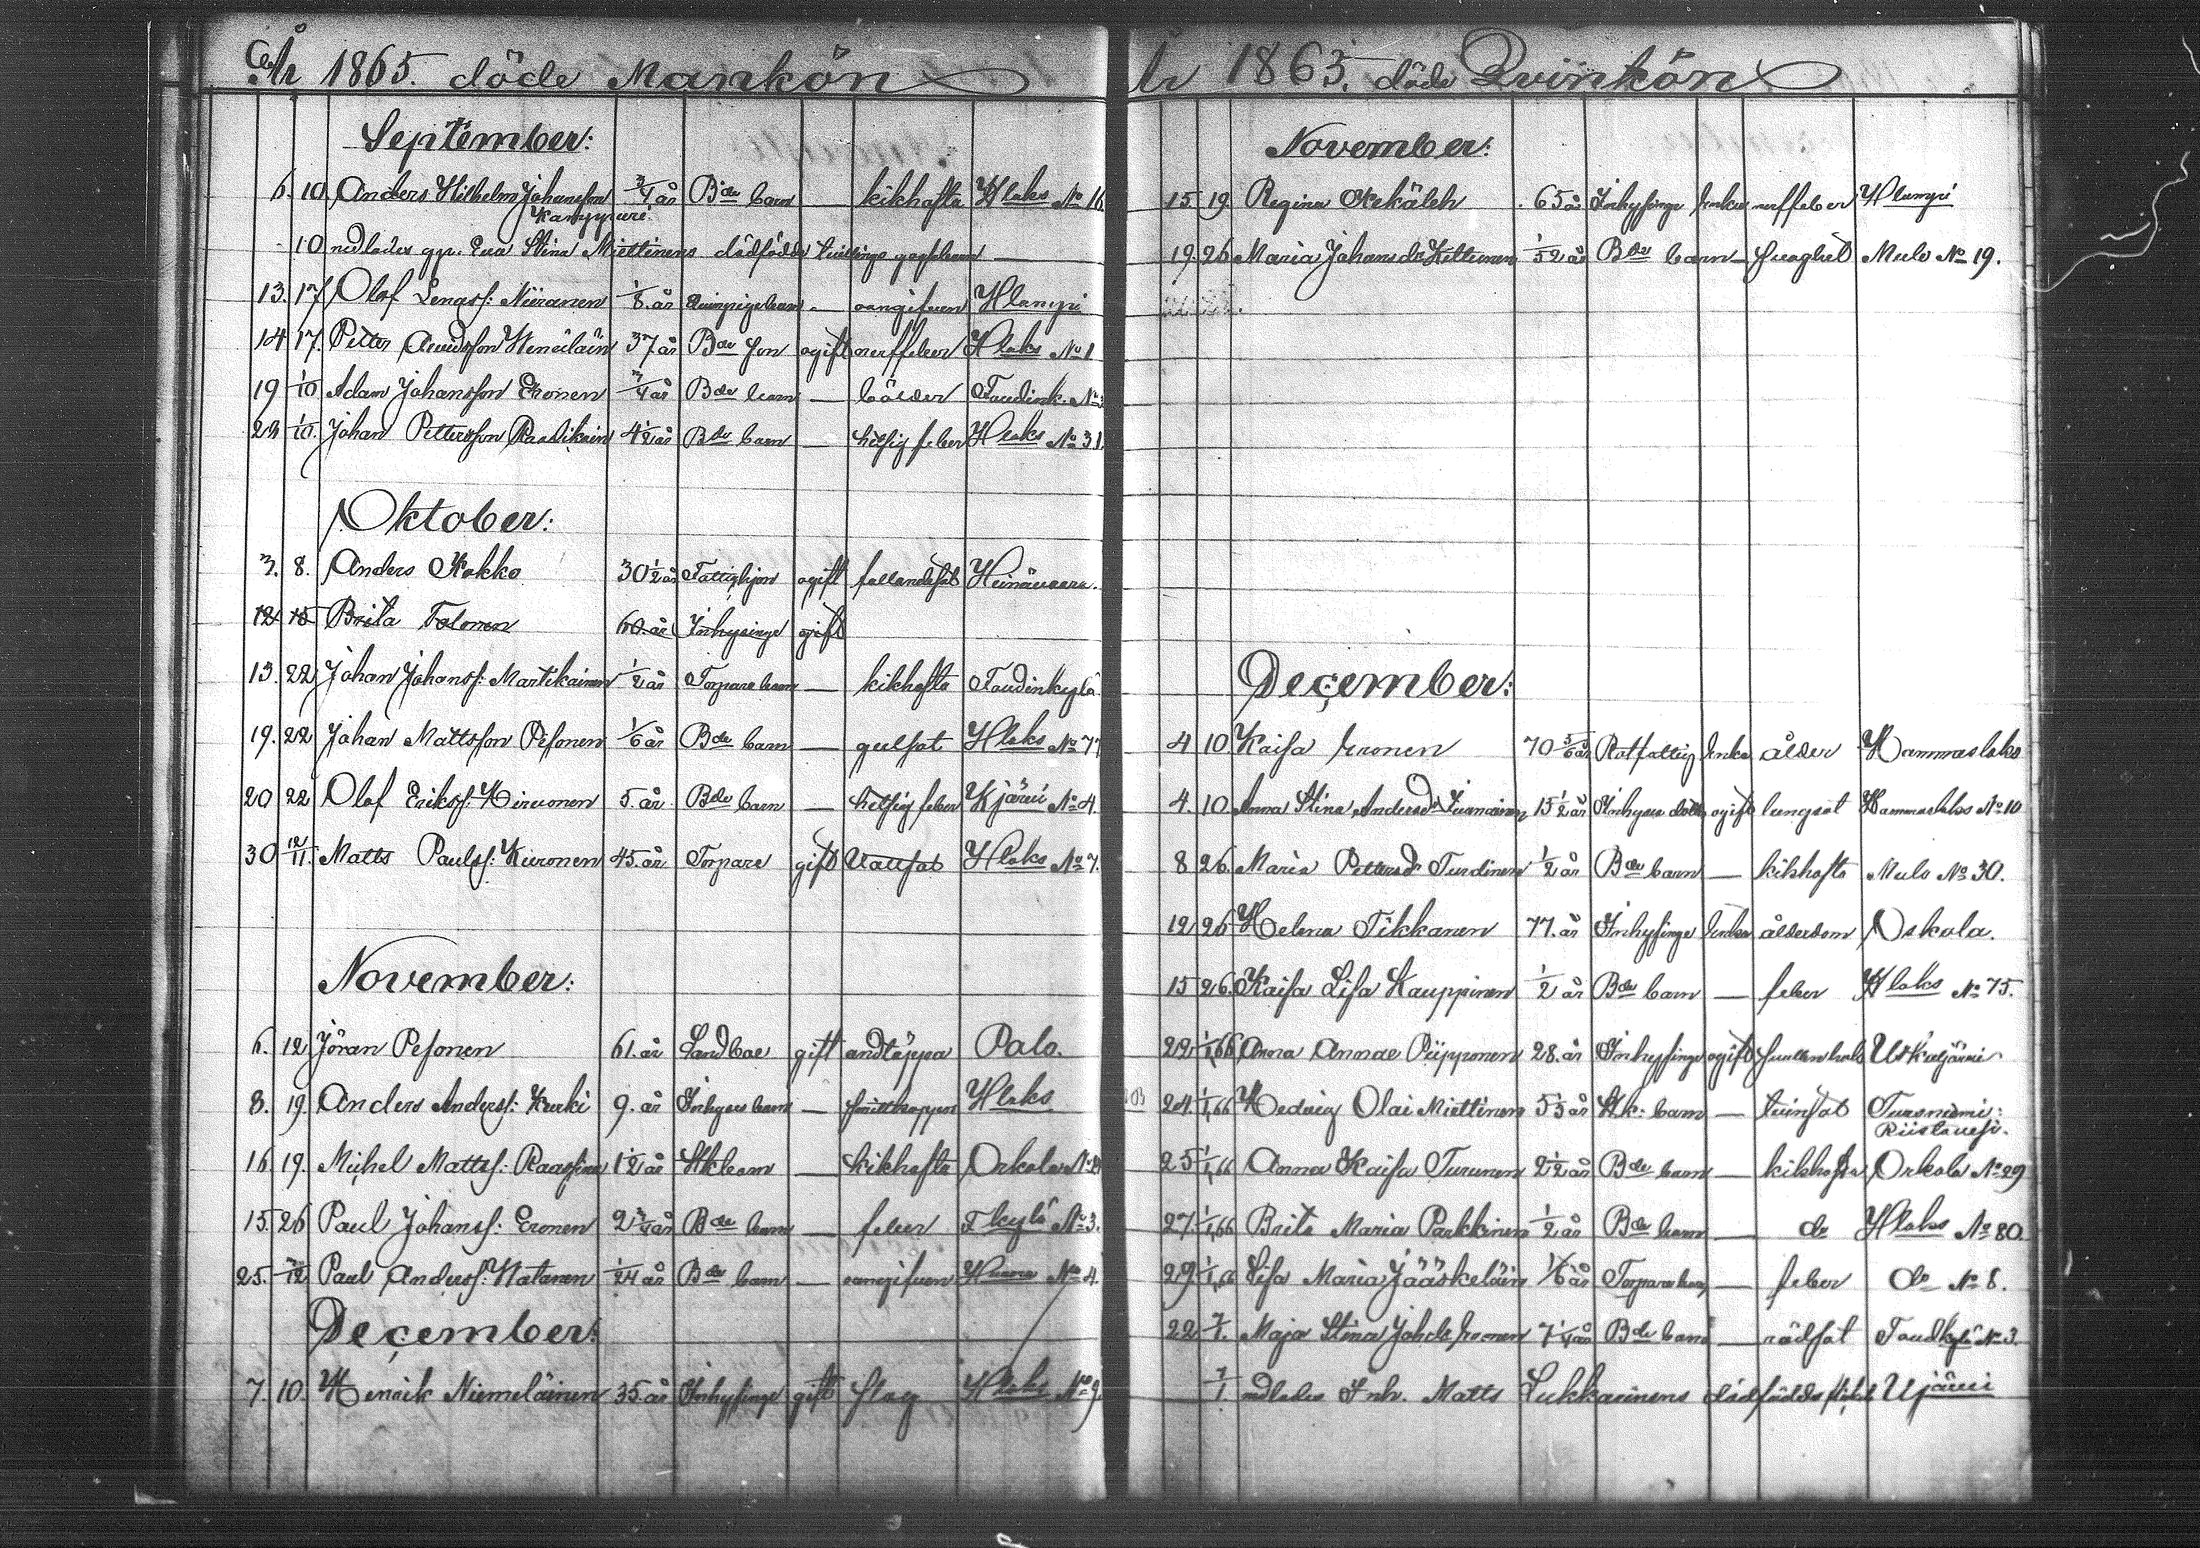 År 1865. döde Mankön
September:
6. 10. Anders Wilhelm Johansson 3/4 år Bde barn — kikhosta Hlaks No 16.
Kamppuri
10 nedlades gp. Eva Stina Miettinens dödfödde tvillings gossebarn —
13. 17 Olof Lengsf: Niiranen 1/8 år barn — Hlampi
14 17. Petter Heneiläin 37 år Bde son ogift nerffeber Hlaks No 1
19 1/10 Adam Johansson Eronen 3/4 år Bde barn — bölder Taudink. No
23 1/10. Johan Pettersson 4 1/2 år Bde barn — hetsig feber Hlaks No 31.
Oktober:
3. 8. Anders Kokko 30 1/2 år Fattighjon ogift fallandesot Heinävaara.
12 15 Brita Tolonen 60. år Inhysinge gift
13. 22 Johan Johansf: Martikainen 1/2 år Torpare barn — kikhosta Taudinkylä
19. 22 Johan Mattsson Pesonen 1/6 år Bde barn — gulsot Hlaks No 77
20 22 Olof Eriksf: Hirvonen 5. år Bde barn — hetsig feber Kjärvi No 4.
30 12/11. Matts Paulsf: Kieronen 45. år Torpare gift Vattsot Hlaks No 7.
November:
6. 12 Jöran Pesonen 61. år Landboe gift andtäppa Palo.
8. 19. Anders Andersf: Kurki 9. år Inhyses barn — Hlaks
16. 19. Mickel Mattsf: 1 1/2 år barn — kikhosta Orkola No
15. 26 Paul Johansf: Eronen 2 3/4 år Bde barn — feber Tkylä No 3.
25. /12 Paul Andersf: Hatanen 1/24 år Bde barn — No 4
December:
7. 10. Henrik Niemeläinen 35 år Inhysinge gift slag Hlaks No 9
År 1865. döde Qvinkön
November:
15 19. Regina Kekäleh 65 år Inhysinge Enka nerffeber Hlampi
19. 26 Maria Johansdr Kettunen 1/52 år Bde barn — svaghet Mulo No 19.
December:
4 10 Kaisa Eronen 70 5/6 år Rotfattig Enka ålder Hammaslaks
4. 10. Anna Stina Andersdr 15 1/2 år Inhyses dotter ogift lungsot Hammaslaks No 10
8 26. Maria Pettersdr Turdinen 1/2 år Bde barn — kikhosta Mulo No 30.
12 26 Helena Tikkanen 77. år Inhysinge Enka ålderdom Oskola.
15 26. Kaisa Lisa Kauppinen 1/2 år Bde barn — feber Hlaks No 75.
22 1/1,66 Anna Annae Piipponen 28. år Inhysinge ogift Uskaljärvi
24. 1/1,66 Hedvig Olai Miettinen 5 1/3 år barn — tvinsot Tursniemi:
Riistavesi.
25 1/1,66 Anna Kaisa Turunen 2 1/2 år Bde barn — kikhosta Orkola No 29
27. 1/1,66 Brita Maria Parkkinen 1/2 år Bde barn — do Hlaks No 80.
29 1/1,66 Lisa Maria Jääskeläin 1/6 år Torpare barn — feber do No 8.
22 7/1. Maja Stina Johdr Eronen 7 1/4 år Bde barn — rödsot Taudkylä No 3.
7/1 nedlades Inh. Matts Lukkarinens dödfödde Ujärvi